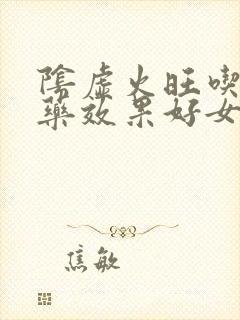 陰虛火旺喫
藥效果好女
焦敏